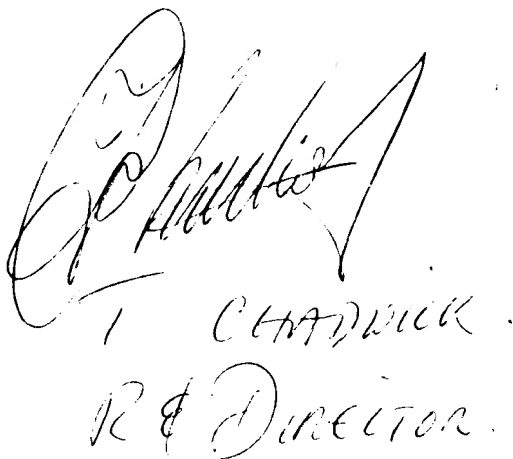 T CHADWICK.
R & D DIRECTOR.